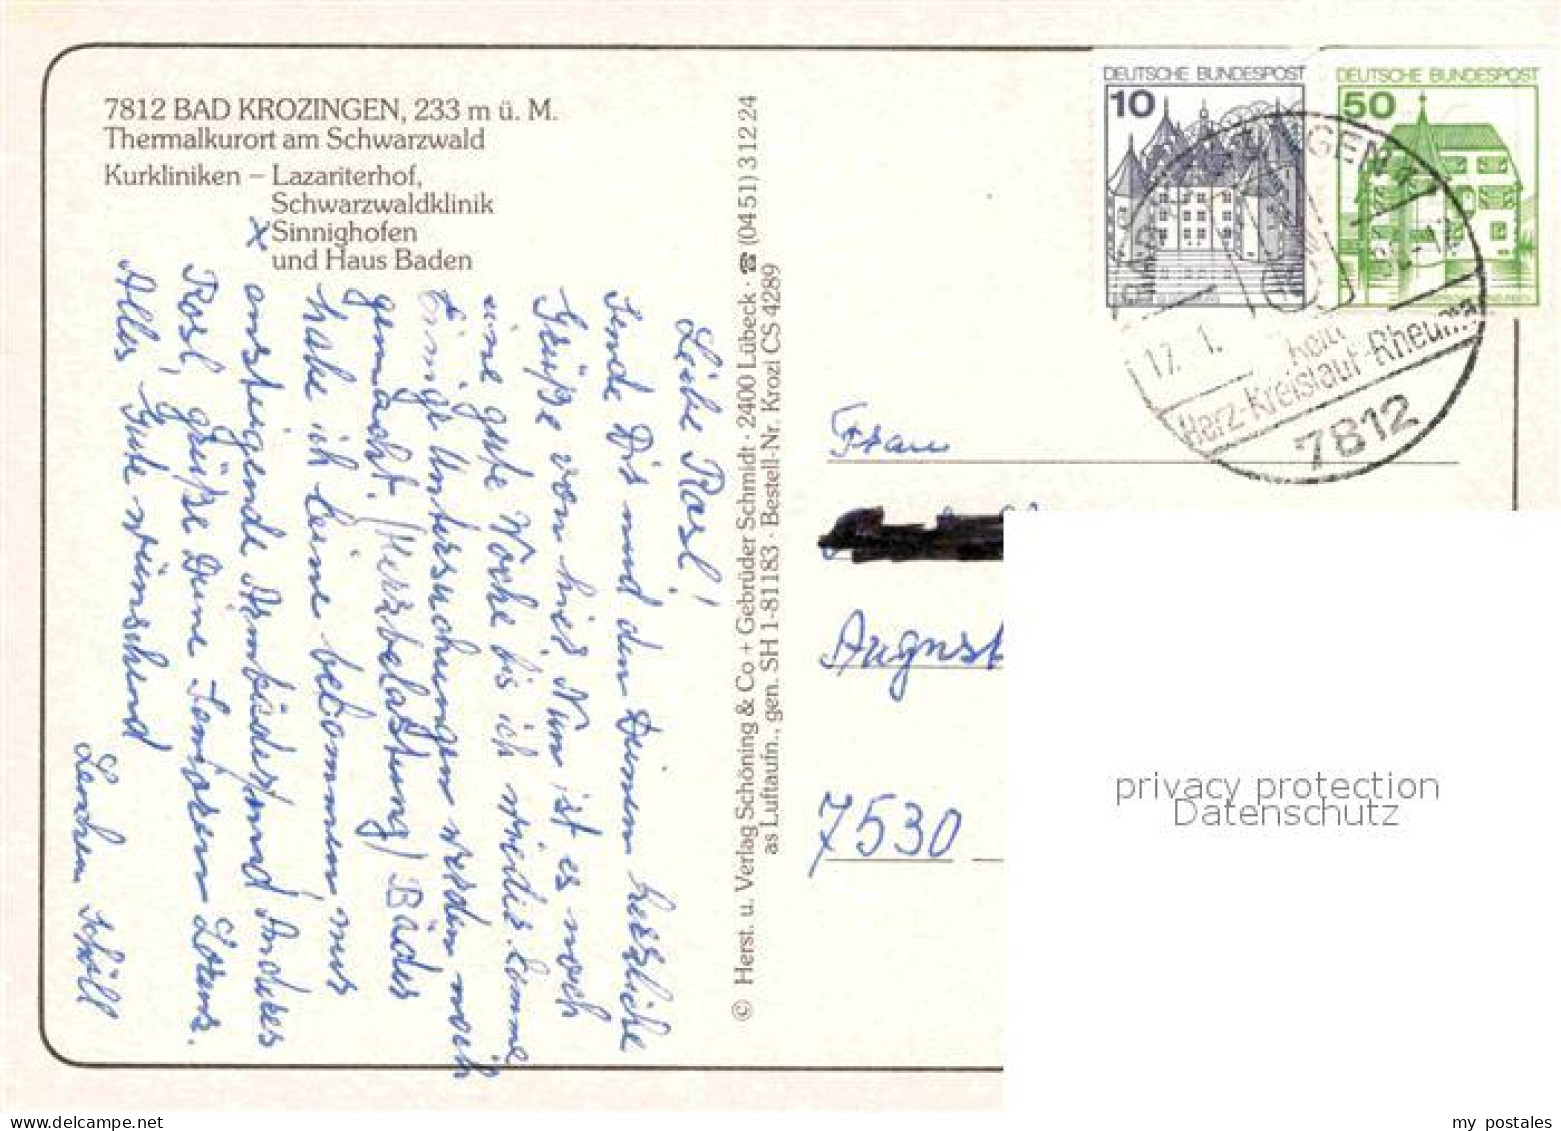 7812 BAD KROZINGEN, 233 m ü. M.
Thermalkurort am Schwarzwald
Kurkliniken – Lazariterhof,
Schwarzwaldklinik
x Sinnighofen
und Haus Baden
Liebe Rosl!
Sende Dir und den Deinen herzliche
Grüße von hier. Nun ist es noch
eine gute Woche bis ich wieder komme
Einige Untersuchungen werden noch
gemacht. (Herzbelastung) Bäder
habe ich keine bekommen nur
ansteigende Armbäder und Anderes
Rosl, grüße Deine
Alles Gute wünschend
Lenchen Schöll
© Herst. u. Verlag Schöning & Co + Gebrüder Schmidt · 2400 Lübeck · ☎ (04 51) 3 12 24
as Luftaufn., gen. SH 1-81183 · Bestell-Nr. Krozi CS 4289
DEUTSCHE BUNDESPOST
10
DEUTSCHE BUNDESPOST
50
BAD KROZINGEN 1
17. 1.
Herz-Kreislauf-Rheuma
7812
Frau
August
7530
privacy protection
Datenschutz
my postales